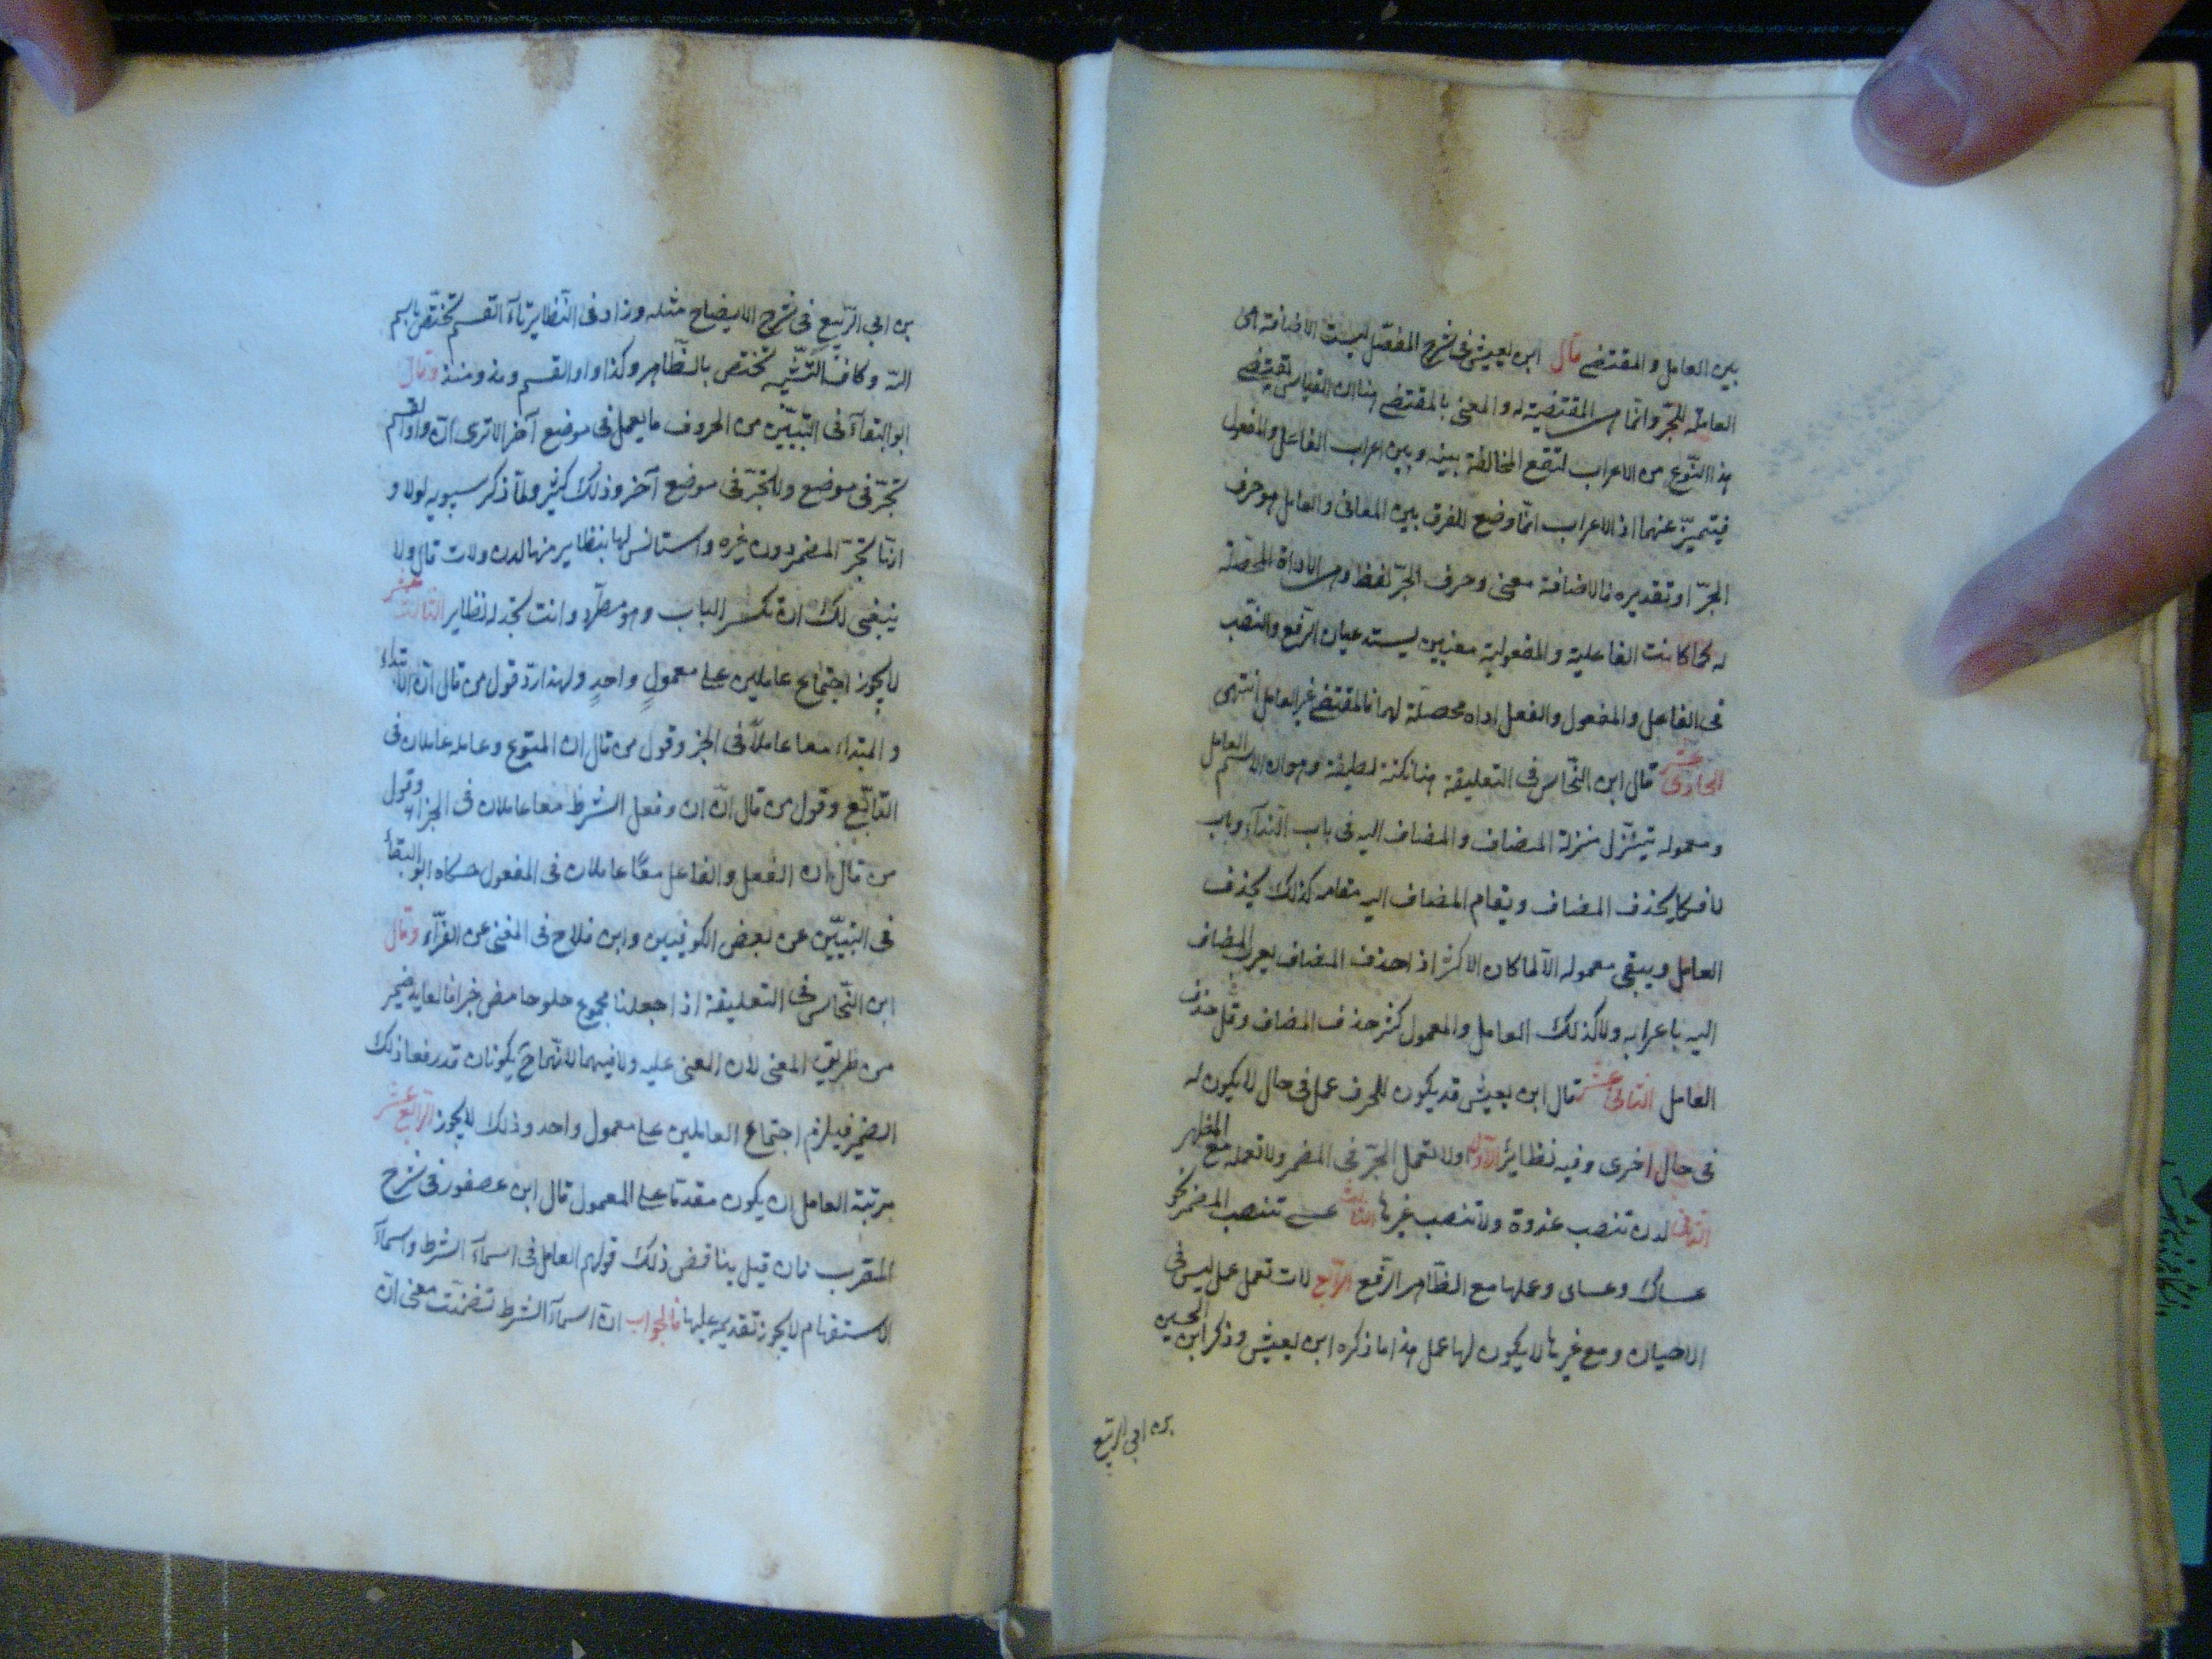 بين العامل والمقتضى قال ابن يعيش فى شرح المفصّل ليست الاضافة هى
العاملة للجرّ وانّما هى المقتضية له والمعنى بالمقتضى هنا ان القياس يقتضى
هذا النّوع من الاعراب لتقع المخالفة بينه وبين اعراب الفاعل والمفعول
فيتميّز عنهما اذ الاعراب انّما وضع للفرق بين المعانى والعامل هو حرف
الجرّ او تقديره فالاضافة معنى وحرف الجرّ لفظ وهى الاداة المحصّلة
له كما كانت الفاعلية والمفعولية معنيين يستدعيان الرّفع والنّصب
فى الفاعل والمفعول والفعل اداه محصلّة لهما فالمقتضى غير العامل انتهى
الحادى عشر قال ابن النحّاس فى التعليقة هنا نكتة لطيفة وهو ان الاسم العامل
ومعموله يتنزّل منزلة المضاف والمضاف اليه فى باب النّدآء وباب
لا فكما يحذف المضاف ويقام المضاف اليه مقامه كذلك يحذف
العامل ويبقى معموله الّا لما كان الاكثر اذا حذف المضاف يعرب المضاف
اليه باعرابه ولا كذلك العامل والمعمول كثر حذف المضاف وقل حذف
العامل الثانى عشر قال ابن يعيش قد يكون للحرف عمل فى حال لا يكون له
فى حال اخرى وفيه نظائر الاوّل لولا تعمل الجرّ فى المضمر ولا تعمله مع المظهر
الثانى لدن تنصب غدوة ولا تنصب غيرها الثالث عسى تنصب المضمر نحو
عساك وعسانى وعملها مع الظّاهر الرّفع الرّابع لات تعمل عمل ليس فى
الاحيان ومع غيرها لا يكون لها عمل هذا ما ذكره ابن يعيش وذكر ابن الحسين
بن ابى الرّبيع
بن ابى الرّبيع فى شرح الايضاح مثله وزاد فى النّظاير تآء القسم تختصّ باسم
اللّه وكاف التّشبيه تختص بالظّاهر وكذا واو القسم ومذ ومنذ وقال
ابو البقآء فى التّبيين من الحروف ما يعمل فى موضع آخر الا ترى انّ واو القسم
تجرّ فى موضع ولا تجرّ فى موضع آخر وذلك كثير ولمّا ذكر سيبويه لولا و
انّها تجرّ المضمر دون غيره واستانس لها بنظاير منها لدن ولات قال ولا
ينبغى لك ان تكسر الباب وهو مطّرد وانت تجد له نظاير الثالث عشر
لا يجوز اجتماع عاملين على معمولٍ واحدٍ ولهذا ردّ قول من قال ان الابتداء
والمبتداء معا عاملا فى الخبر وقول من قال ان المتبوع وعامله عاملان فى
التّابع وقول من قال انّ ان وفعل الشرط معا عاملان فى الجزاء وقول
من قال ان الفعل والفاعل معًا عاملان فى المفعول حكاه ابو البقآء
فى التبيين عن بعض الكوفيين وابن فلاح فى المغنى عن الفرّآء وقال
ابن النّحاس فى التعليقة اذا جعلنا مجموع حلو حامض خبرا فالعايد ضمير
من طريق المعنى لان المعنى عليه ولا فيهما لانّهما ح يكونان قد رفعا ذلك
الضمير فيلزم اجتماع العاملين على معمول واحد وذلك لا يجوز الرّابع عشر
مرتبة العامل ان يكون مقدمّا على المعمول قال ابن عصفور فى شرح
المقرب فان قيل يناقض ذلك قولهم العامل فى اسمآء الشرط واسمآء
الاستفهام لا يجوز تقديمه عليها فالجواب انّ اسمآء الشرط تضمّنت معنى انّ